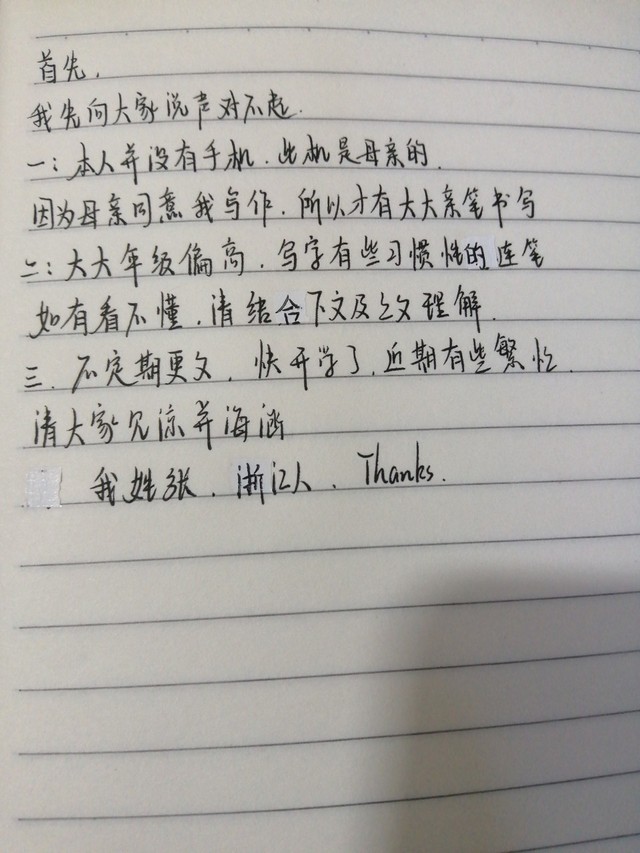 首先,
我先向大家说声对不起.
一:本人并没有手机.此机是母亲的.
因为母亲同意我写作.所以才有大大亲笔书写
二:大大年级偏高.写字有些习惯性的连笔
如有看不懂.请结合下文及上文理解.
三.不定期更文.快开学了.近期有些繁忙.
请大家见谅并海涵
我姓张.浙江人.Thanks.